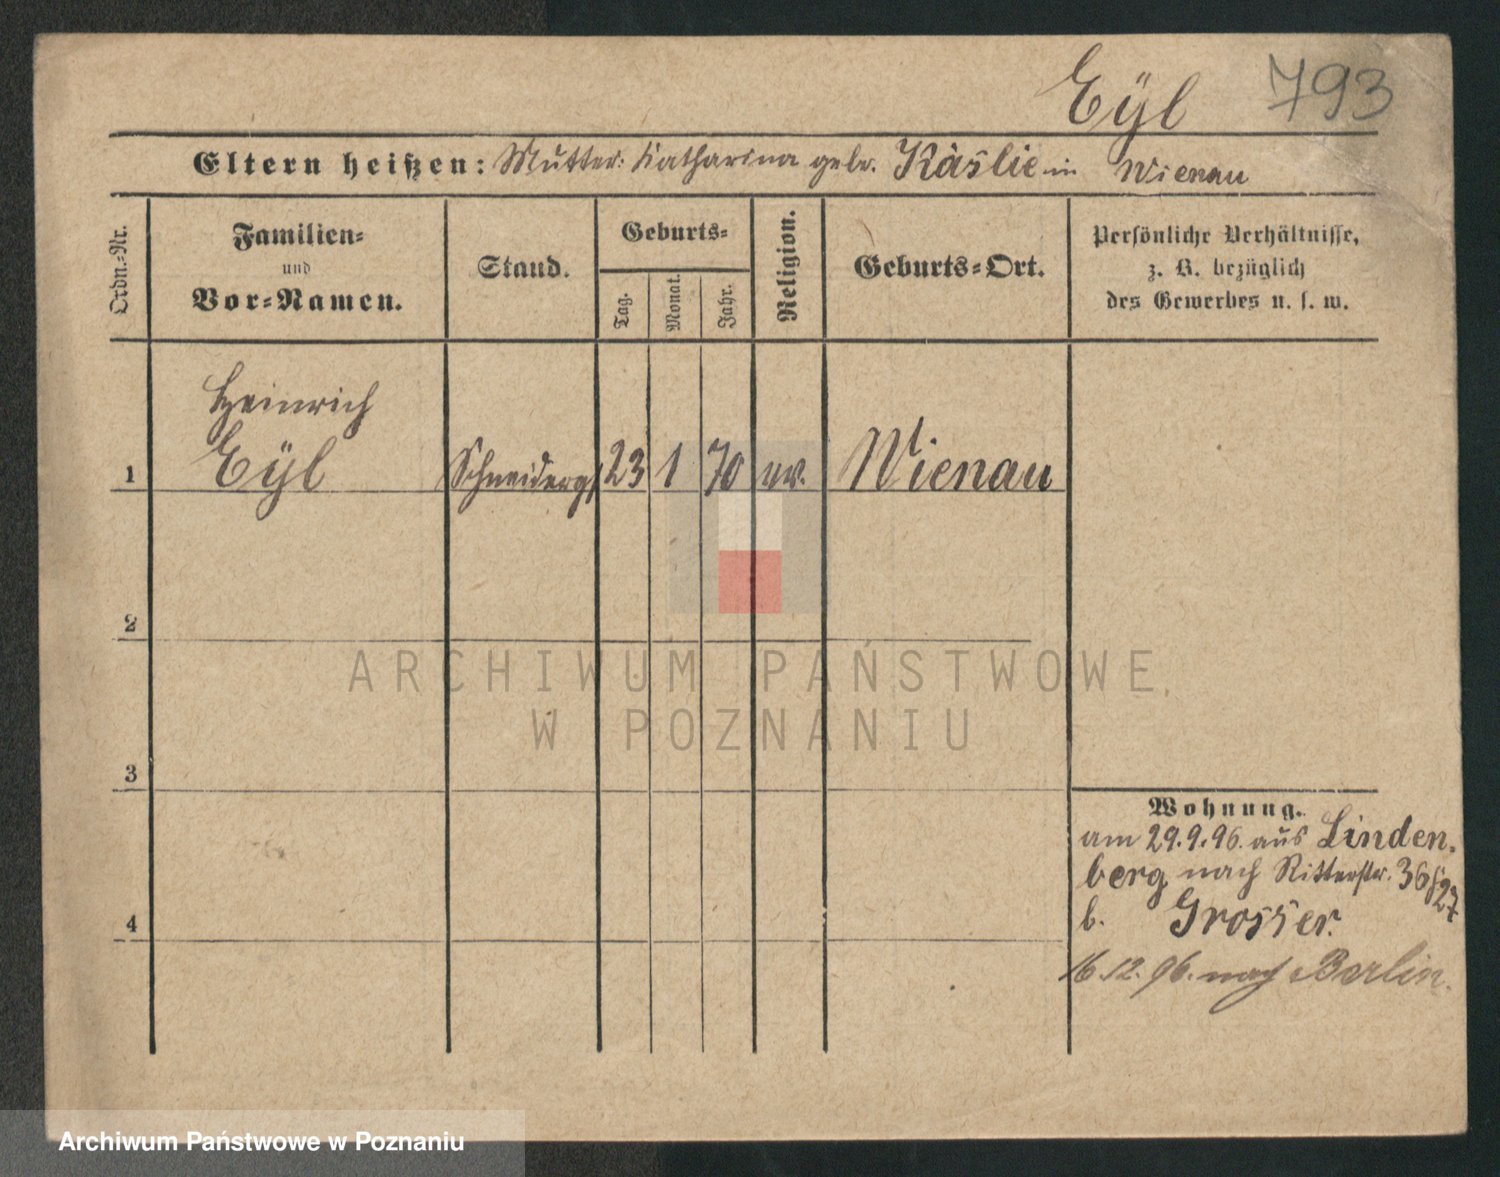 Eÿl 793
Eltern heißen: Mutter: Katharina geb. Käslie in Wienau
Ordn.-Nr.
Familien-
und
Vor-Namen.
Stand.
Geburts-
Tag.
Monat.
Jahr.
Religion.
Geburts-Ort.
Persönliche Verhältnisse,
z. B. bezüglich
des Gewerbes u. s. w.
Heinrich
1 Eÿl Schneiderg. 23 1 70 ev. Wienau
2
3
4
Wohnung.
am 29.9.96. aus Linden-
berg nach Ritterstr. 36/27
b. Grosser.
16.12.96. nach Berlin.
ARCHIWUM PAŃSTWOWE
W POZNANIU
Archiwum Państwowe w Poznaniu